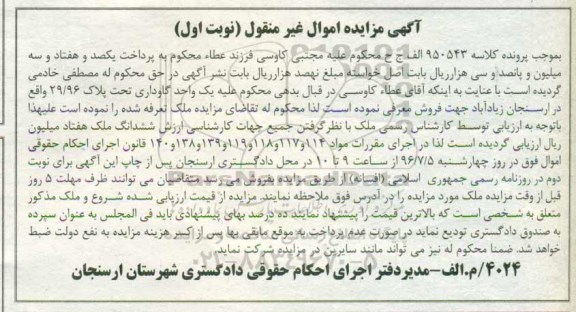 آگهی مزایده اموال غیر منقول (نوبت اول)
بموجب پرونده کلاسه ۹۵۰۵۴۳ الف ح ج محکوم علیه مجتبی کاوسی فرزند عطاء محکوم به پرداخت یکصد و هفتاد و سه
میلیون و پانصد و سی هزارریال بابت اصل خواسته مبلغ نهصد هزارریال بابت نشر آگهی در حق محکوم له مصطفی خادمی
گردیده است با عنایت به اینکه آقای عطاء کاوسی در قبال بدهی محکوم علیه یک واحد گاوداری تحت پلاک ۲۹/۹۶ واقع
در ارسنجان زیادآباد جهت فروش معرفی نموده است لذا محکوم له تقاضای مزایده ملک تعرفه شده را نموده است علیهذا
باتوجه به ارزیابی توسط کارشناس رسمی ملک با نظر گرفتن جمیع جهات کارشناسی ارزش ششدانگ ملک هفتاد میلیون
ریال ارزیابی گردیده است لذا در اجرای مقررات مواد ۱۱۴و۱۱۷و۱۱۸و۱۱۹و۱۳۸و۱۴۰ قانون اجرای احکام حقوقی
اموال فوق در روز چهارشنبه ۹۶/۷/۵ از ساعت ۹ تا ۱۰ در محل دادگستری ارسنجان پس از چاپ این آگهی برای نوبت
دوم در روزنامه رسمی جمهوری اسلامی (افسانه) از طریق مزایده بفروش می رسد متقاضیان می توانند ظرف مهلت ۵ روز
قبل از وقت مزایده ملک مورد مزایده را در آدرس فوق ملاحظه نمایند. مزایده از قیمت ارزیابی شده شروع و ملک مذکور
متعلق به شخصی است که بالاترین قیمت را پیشنهاد نمایند ده درصد بهای پیشنهادی باید فی المجلس به عنوان سپرده
به صندوق دادگستری تودیع نماید در صورت عدم پرداخت به موقع مابقی بها پس از کسر هزینه مزایده به نفع دولت ضبط
خواهد شد. ضمنا محکوم له نیز می تواند مانند سایرین در مزایده شرکت نماید.
۴۰۲۴/م.الف-مدیردفتر اجرای احکام حقوقی دادگستری شهرستان ارسنجان